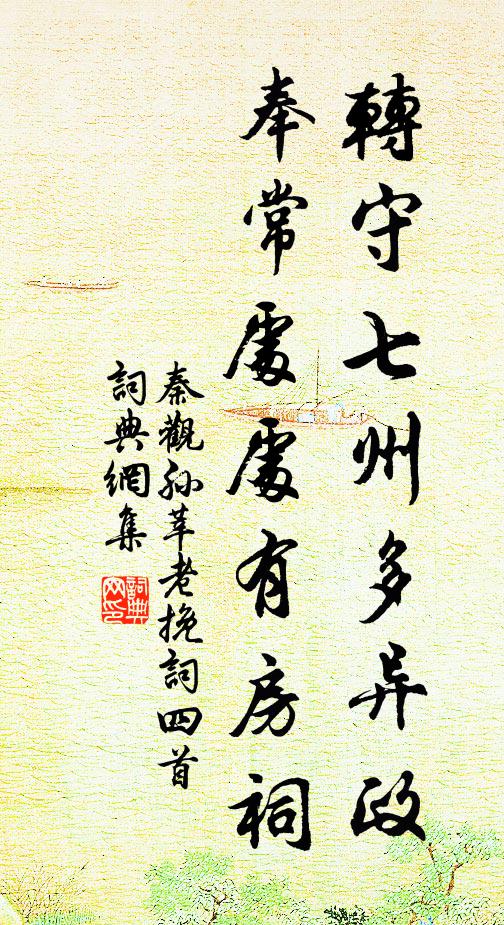 轉守七州多异政
奉常處處有房祠
秦觀孙莘老挽詞四首
詞典網集
詞典
网印